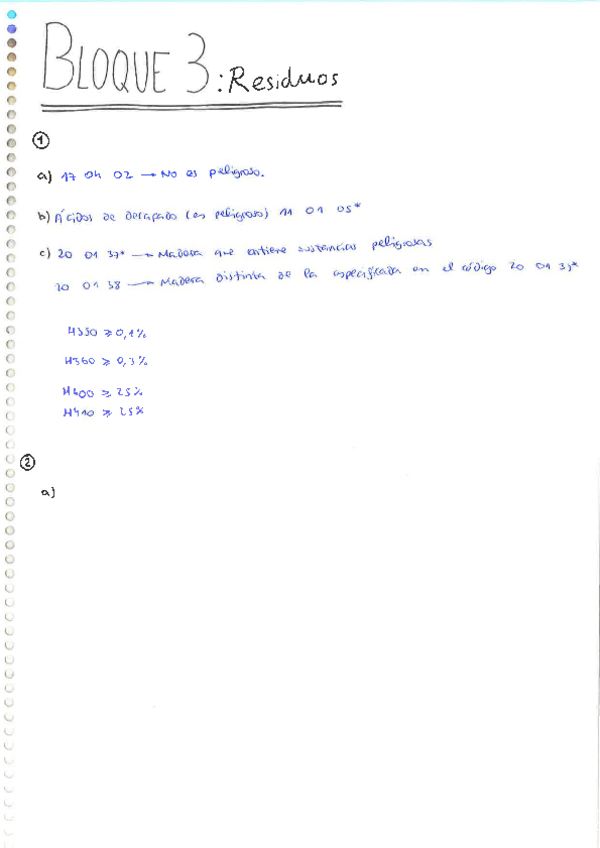 BLOQUE 3: Residuos
1
a) 17 04 02 → No es peligroso.
b) Ácidos de decapado (es peligroso) 11 01 05*
c) 20 01 37* → Madera que contiene sustancias peligrosas
20 01 38 → Madera distinta de la especificada en el código 20 01 37*
H350 ≥ 0,1%
H360 ≥ 0,3%
H400 ≥ 25%
H410 ≥ 25%
2
a)